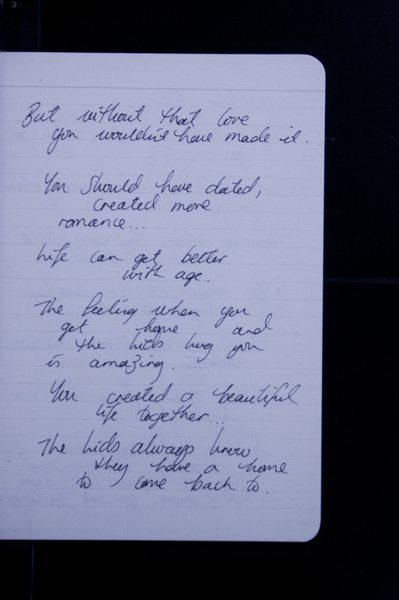 But without that love
you wouldn't have made it.
You should have dated,
created more
romance...
Life can get better
with age.
The feeling when you
get home and
the kids hug you
is amazing.
You created a beautiful
life together...
The kids always know
they have a home
to come back to.